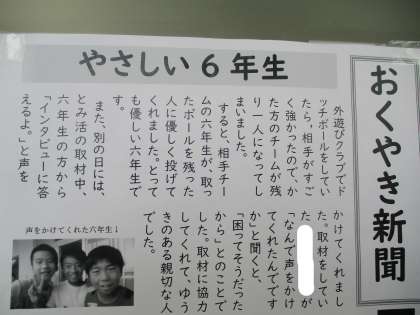 おくやき新聞
やさしい6年生
外遊びクラブでド
ッチボールをしてい
たら，相手がすご
く強かったので，か
た方のチームが残
り一人になってし
まいました。
すると，相手チー
ムの六年生が，取っ
たボールを残った
人に優しく投げて
くれました。とって
も優しい六年生で
す。
また，別の日には，
とみ活の取材中，
六年生の方から
「インタビューに答
えるよ。」と声を
かけてくれまし
た。取材をしてい
た
が
「なんで声をかけ
てくれたんですす
か」と聞くと，
「困ってそうだった
から」とのことで
した。取材に協力
してくれて，ゆう
きのある親切な人
でした。
声をかけてくれた六年生↓